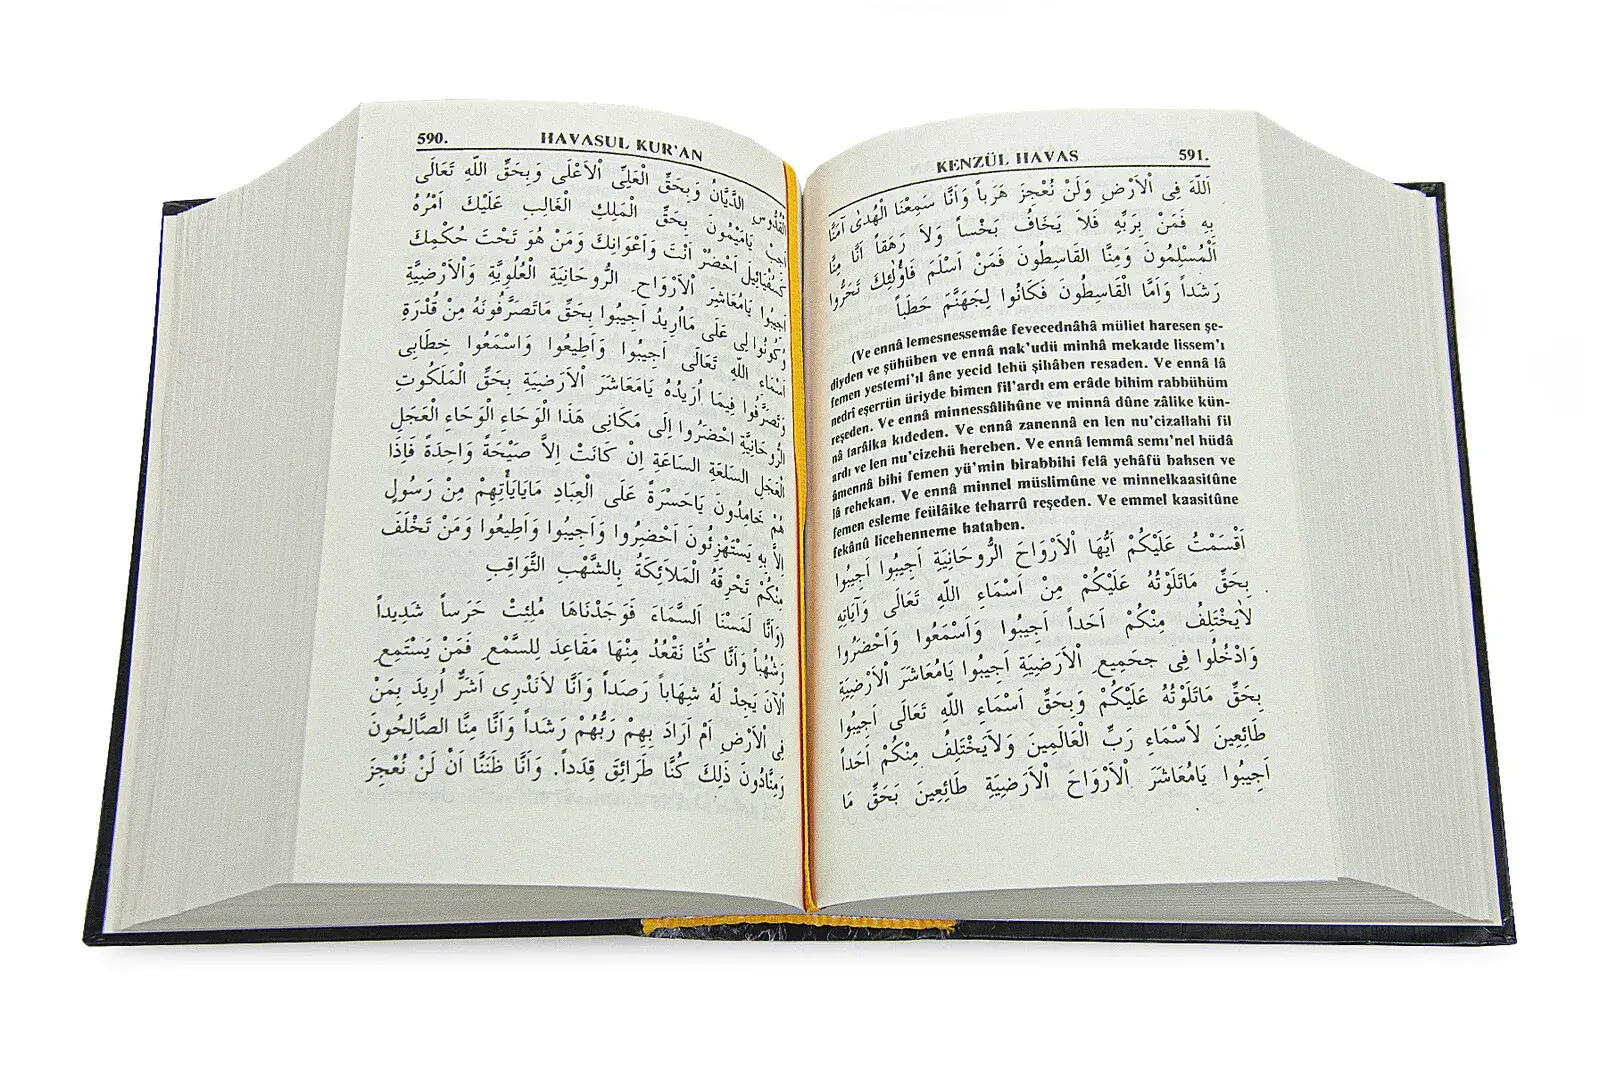 590. HAVASUL KUR'AN
الْقُدُّوسِ الدَّيَّانُ وَبِحَقِّ الْعَلِىِّ الْاَعْلَى وَبِحَقِّ اللّهِ تَعَالَى
اَجِبْ يَامَيْمُونَ بِحَقِّ الْمَلِكِ الْغَالِبِ عَلَيْكَ اَمْرُهُ
اَحْضُرْ اَنْتَ وَاَعْوَانِكَ وَمَنْ هُوَ تَحْتَ حُكْمِكَ
اَجِيبُوا يَامُعَاشِرَ الْاَرْوَاحِ الرُّوحَانِيَةِ الْعُلْوِيَّةِ وَالْاَرْضِيَّةِ
وَكُونُوا لِى عَلَى مَااُرِيدُ اَجِيبُوا بِحَقِّ مَاتَصَرَّفُونَهُ مِنْ قُدْرَةِ
اَسْمَاءِ اللّهِ تَعَالَى اَجِيبُوا وَاَطِيعُوا وَاسْمَعُوا خِطَابِى
وَتَصَرَّفُوا فِيمَا اُرِيدُهُ يَامَعَاشَرَ الْاَرْضِيَةِ بِحَقِّ الْمَلَكُوتِ
الرُّوحَانِيَّةِ احْضَرُوا اِلَى مَكَانِى هَذَا الْوَحَاءِ الْوَحَاءِ الْعَجَلِ
الْعَجَلِ السَّلعَةِ السَاعَةِ اِنْ كَانَتْ اِلاَّ صَيْحَةً وَاحِدَةً فَاِذَا
هُمْ خَامِدُونَ يَاحَسْرَةً عَلَى الْعِبَادِ مَايَايَأْتِهِمْ مِنْ رَسُولٍ
اِلاَّ بِهِ يَسْتَهْزِئُونَ اَحْضِرُوا وَاَجِيبُوا وَاَطِيعُوا وَمَنْ تَخْلَفَ
مِنْكُمْ تَحْرِقَهُ الْمَلاَئِكَةُ بِالشَّهْبِ الثَّوَاقِبِ
(وَاَنَّا لَمَسْنَا اَلسَّمَاءَ فَوَجَدْنَاهَا مُلِئِتْ حَرَساً شَدِيداً
وَشُهُباً وَاَنَّا كُنَّا نَقْعُدُ مِنْهَا مَقَاعِدَ لِلسَّمْعِ فَمَنْ يَسْتَمِعِ
الْاَنَ يَجِدْ لَهُ شِهَاباً رَصَداً وَاَنَّا لاَنَدْرِى اَشَرٌّ اُرِيدَ بِمَنْ
فِى الْاَرْضِ اَمْ اَرَادَ بِهِمْ رَبُّهُمْ رَشَداً وَاَنَّا مِنَّا الصَّالِحُونَ
وَمِنَّادُونَ ذَلِكَ كُنَّا طَرَائِقَ قِدَداً. وَاَنَّا ظَنَنَّا اَنْ لَنْ نُعْجِزَ
KENZÜL HAVAS 591.
اَللّهَ فِى الْاَرْضِ وَلَنْ نُعْجِزَ هَرَباً وَاَنَّا سَمِعْنَا الْهُدٰى اَمَنَّا
بِهِ فَمَنْ بِرَبِّهِ فَلاَ يَخَافُ بَخْساً وَلاَ رَهَقاً اَنَّا مِنَّا
اَلْمُسْلِمُونَ وَمِنَّا الْقَاسِطُونَ فَمَنْ اَسْلَمَ فَاُولٰئِكَ تَحَرَّوا
رَشَداً وَاَمَّا الْقَاسِطُونَ فَكَانُوا لِجَهَنَّمَ حَطَباً
(Ve ennâ lemesnessemâe fevecednâhâ müliet haresen şe-
diyden ve şühüben ve ennâ nak'udü minhâ mekaıde lissem'ı
femen yestemi'ıl âne yecid lehü şihâben resaden. Ve ennâ lâ
nedrî eşerrün üriyde bimen fil'ardı em erâde bihim rabbühüm
reşeden. Ve ennâ minnessâlihûne ve minnâ dûne zâlike kün-
nâ tarâika kıdeden. Ve ennâ zanennâ en len nu'cizallahi fil
ardı ve len nu'cizehü hereben. Ve ennâ lemmâ semı'nel hüdâ
âmennâ bihi femen yü'min birabbihi felâ yehâfü bahsen ve
lâ rehekan. Ve ennâ minnel müslimûne ve minnelkaasitûne
femen esleme feülâike teharrû reşeden. Ve emmel kaasitûne
fekânû licehenneme hataben.
اَقْسَمْتُ عَلَيْكُمْ اَيُّهَا الْاَرْوَاحَ الرُّوحَانِيَةِ اَجِيبُوا اَجِيبُوا
بِحَقِّ مَاتَلَوْتُهُ عَلَيْكُمْ مِنْ اَسْمَاءِ اللّهِ تَعَالَى وَآيَاتِهِ
لاَيَخْتَلِفُ مِنْكُمْ اَحَداً اَجِيبُوا وَاَسْمَعُوا وَاَحْضَرُوا
وَادْخُلُوا فِى جحَمِيعِ الْاَرْضِيَةِ اَجِيبُوا يَامُعَاشَرَ الْاَرْضِيَةِ
بِحَقِّ مَاتَلَوْتُهُ عَلَيْكُمْ وَبِحَقِّ اَسْمَاءِ اللّهِ تَعَالَى اَجِيبُوا
طَائِعِينَ لاَسْمَاءِ رَبِّ الْعَالَمِينَ وَلاَيَخْتَلِفُ مِنْكُمْ اَحَداً
اَجِيبُوا يَامُعَاشَرَ الْاَرْوَاحَ الْاَرْضِيَةِ طَائِعِينَ بَحَقِّ مَا